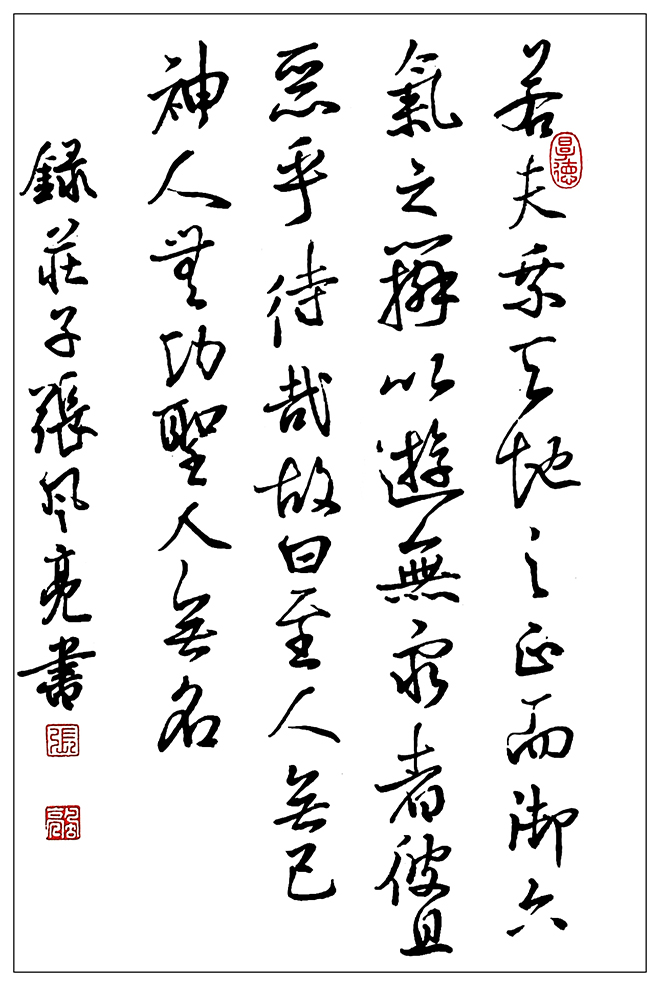 若夫乘天地之正而御六
氣之辯以遊無窮者彼且
惡乎待哉故曰至人無己
神人無功聖人無名
録莊子張風亮書
張